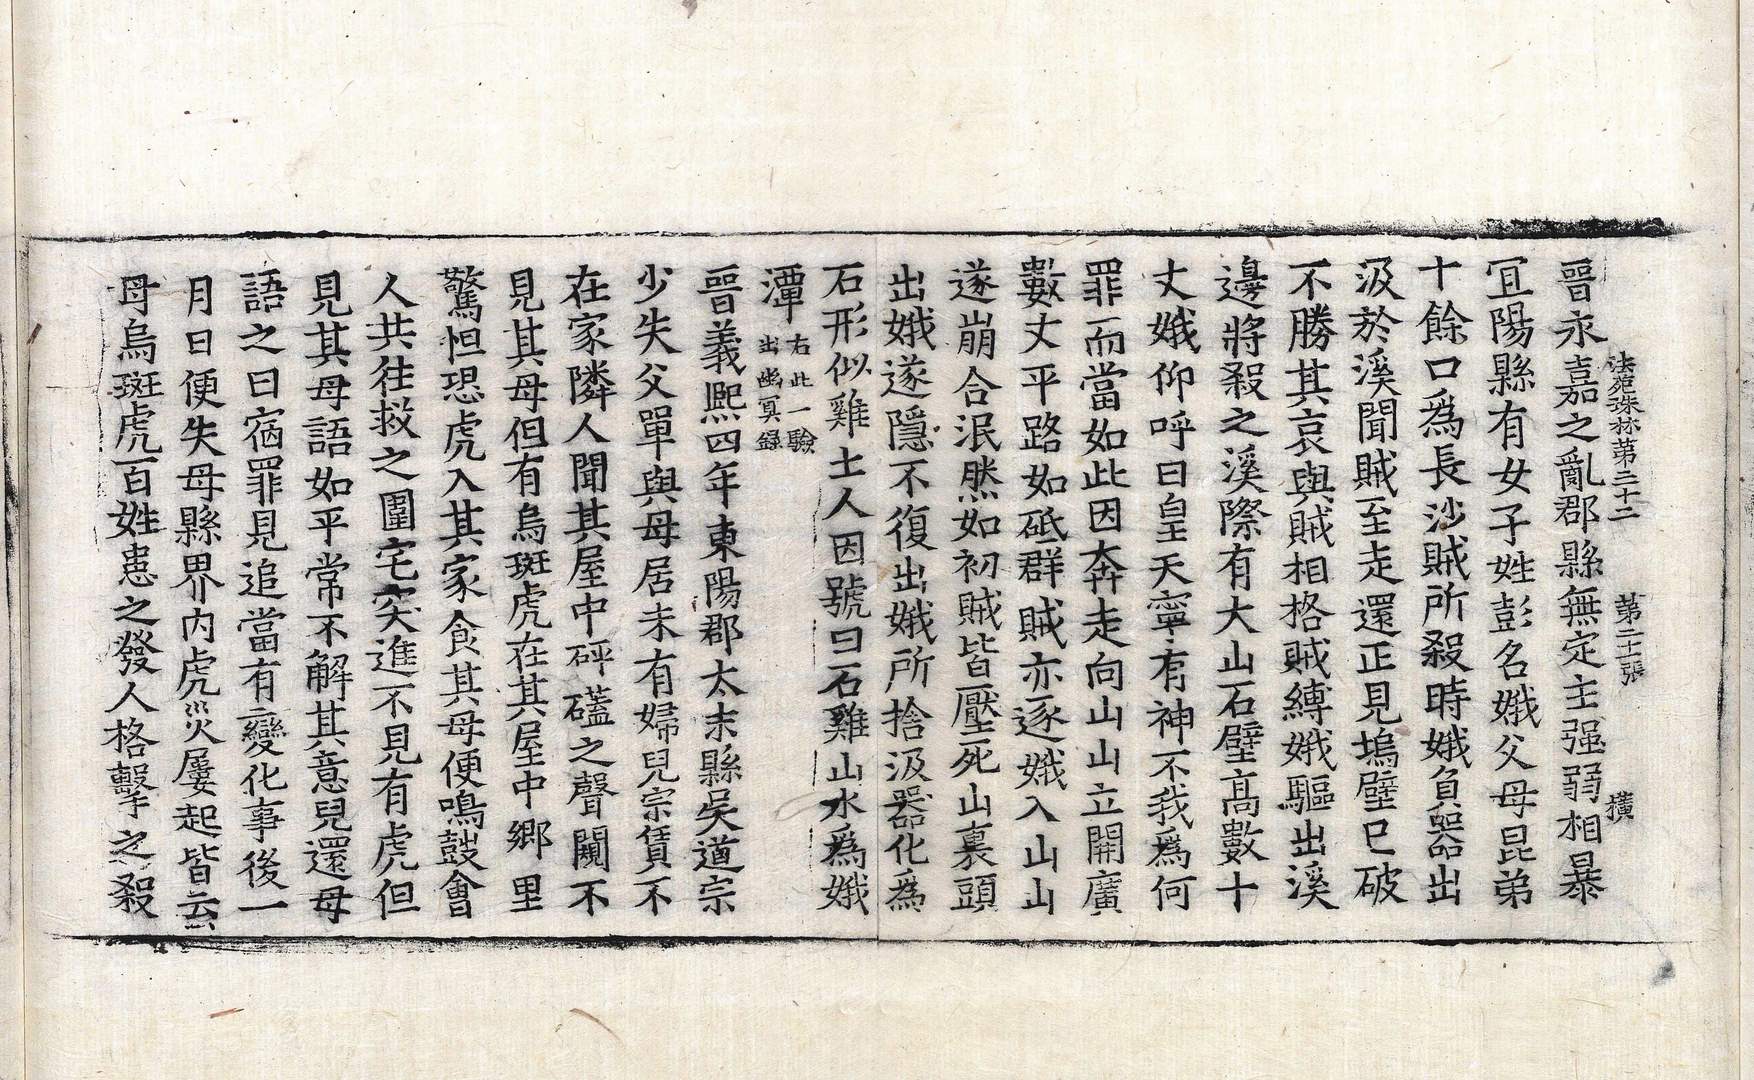 法苑珠林第三十二 第二十張 橫
晉永嘉之亂郡縣無定主强弱相暴
宜陽縣有女子姓彭名娥父母昆弟
十餘口爲長沙賊所殺時娥負器出
汲於溪聞賊至走還正見塢壁已破
不勝其哀與賊相格賊縛娥驅出溪
邊將殺之溪際有大山石壁高數十
丈娥仰呼曰皇天寧有神不我爲何
罪而當如此因奔走向山山立開廣
數丈平路如砥群賊亦逐娥入山山
遂崩合泯然如初賊皆壓死山裏頭
出娥遂隱不復出娥所捨汲器化爲
石形似雞土人因號曰石雞山水爲娥
潭
右此一驗
出幽冥錄
晉義熙四年東陽郡太末縣吳道宗
少失父單與母居未有婦兒宗賃不
在家隣人聞其屋中砰磕之聲闚不
見其母但有烏斑虎在其屋中鄉里
驚怛恐虎入其家食其母便鳴鼓會
人共往救之圍宅突進不見有虎但
見其母語如平常不解其意兒還母
語之曰宿罪見追當有變化事後一
月日便失母縣界內虎災屢起皆云
母烏斑虎百姓患之發人格擊之殺